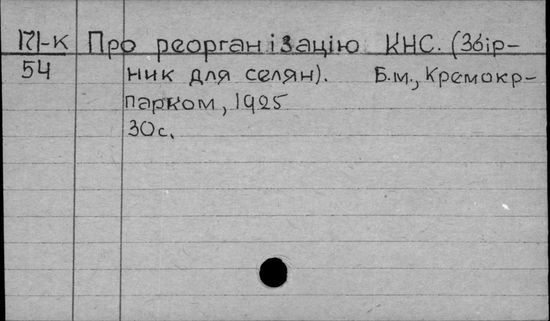 171-к Про реорганізацію КНС. (Збір-
54 ник для селян). Б.м., Кремокр-
парком, 1925
30с.